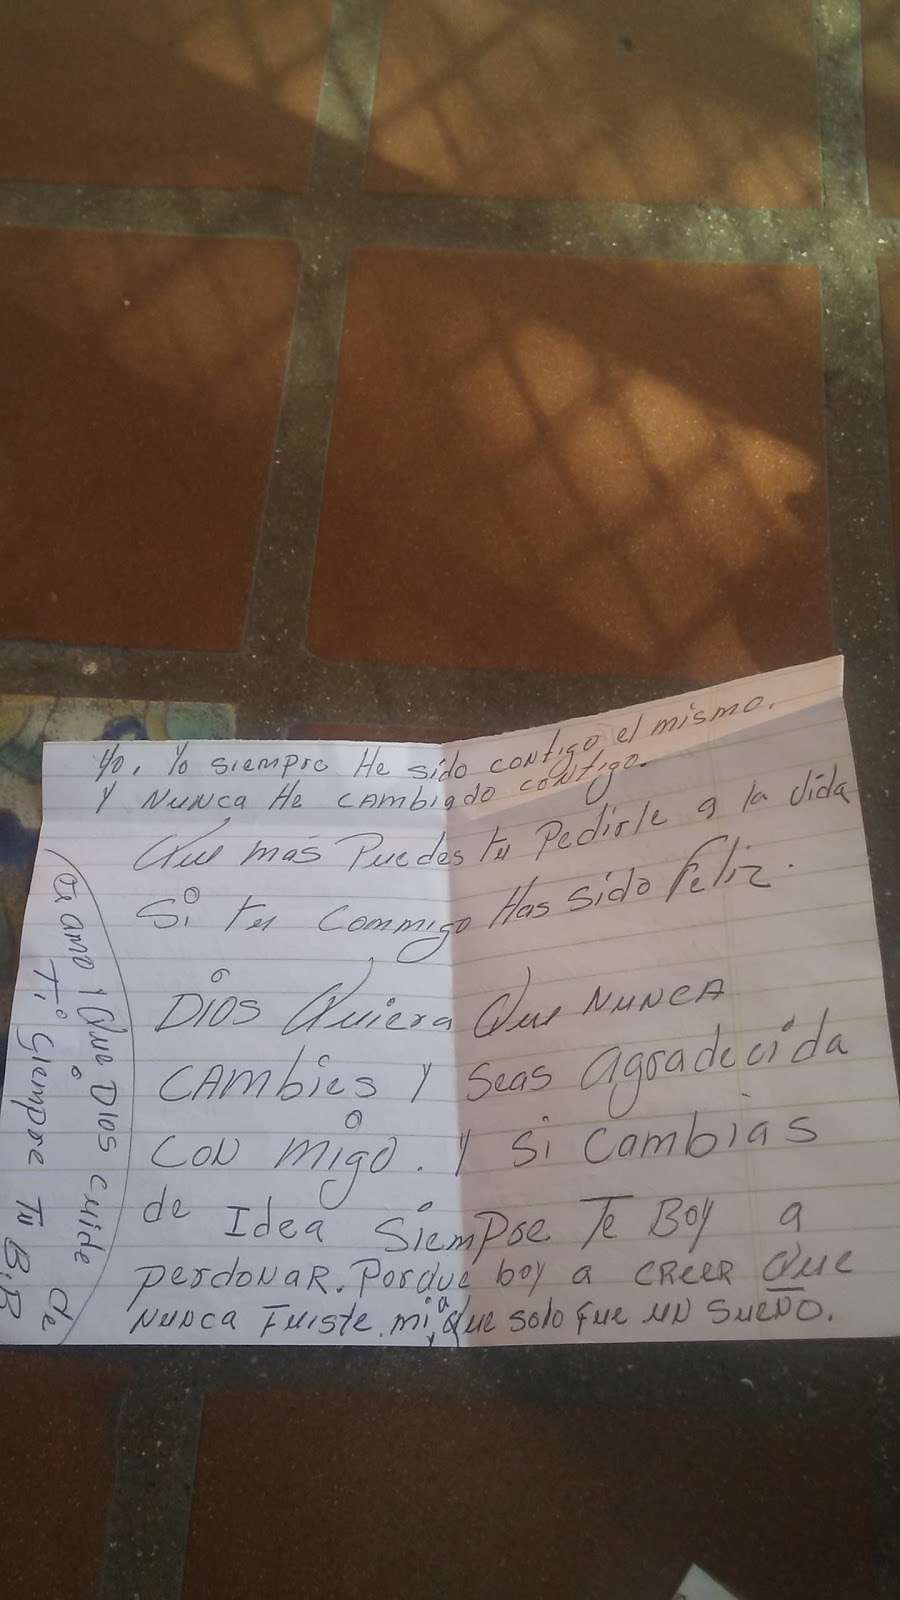 Yo, Yo siempre He sido contigo el mismo.
Y NUNCA He CAMbiado contigo.
Que mas Puedes tu Pedirle a la vida
Si tu Commigo Has sido Feliz.
Dios Quiera Que NUNCA
CAMbies Y seas agradecida
CON migo. Y si Cambias
de Idea Siempre Te Boy a
perdonaR. Porque boy a CREER Que
NUNCA Fuiste mia, Y Que solo Fue UN SueÑo.
te amo Y Que Dios cuide de
Ti Siempre Tu B.B